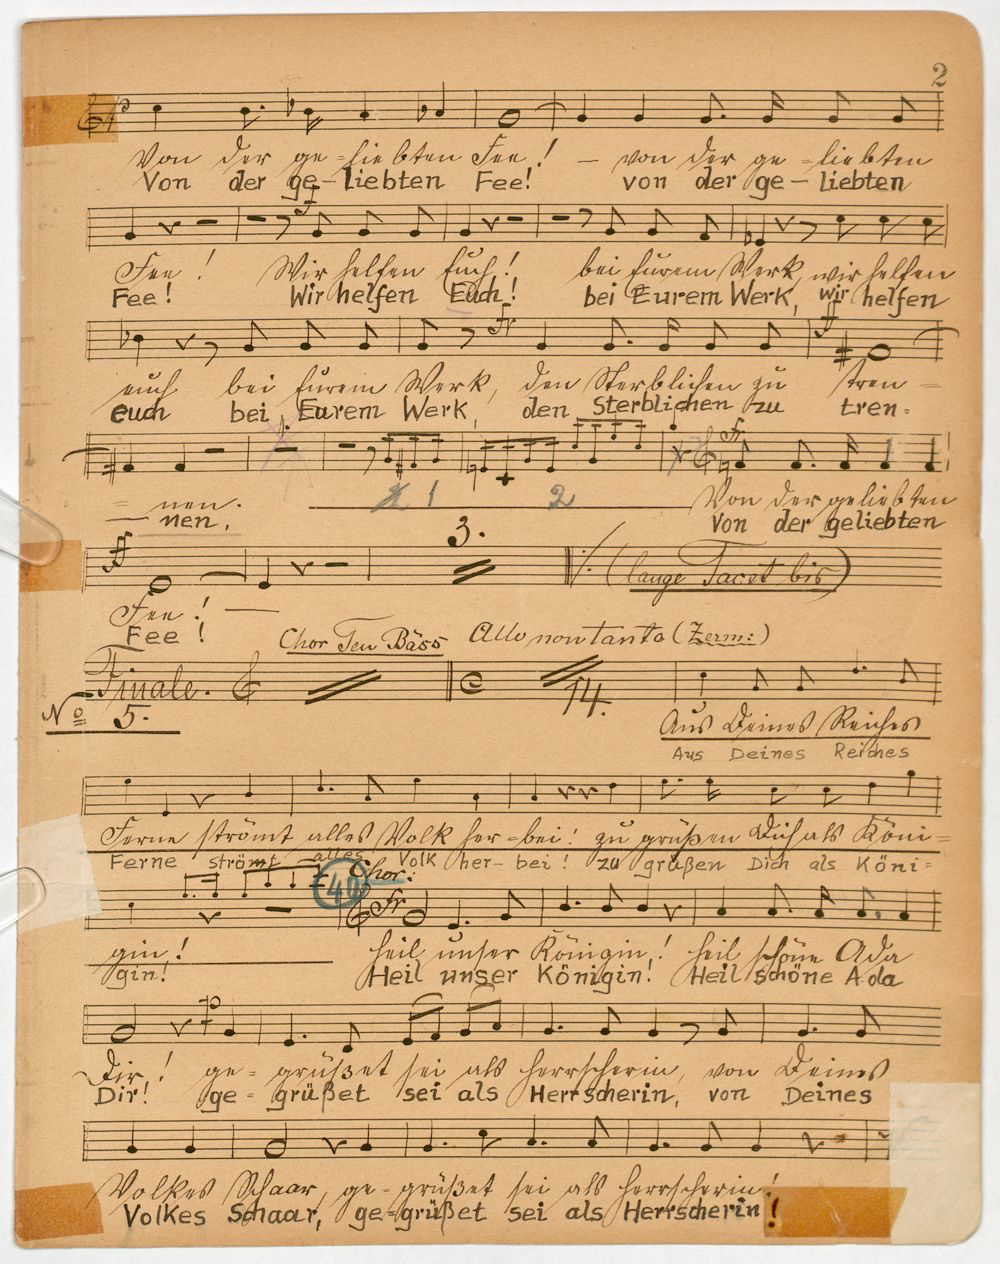 2
Von der ge-liebten Fee! – von der ge-liebten
Von der ge-liebten Fee! von der ge-liebten
f
Fee! Wir helfen Euch! bei Eurem Werk, wir helfen
Fee! Wir helfen Euch! bei Eurem Werk, wir helfen
ff
euch bei Eurem Werk, den Sterblichen zu tren-
euch bei Eurem Werk, den Sterblichen zu tren-
1 2
- nen. Von der geliebten
- nen. Von der geliebten
ff 3.
(lange Tacet bis)
Fee! —
Fee!
Chor Ten Bäss Allo non tanto (Zerm:)
Finale.
No 5. 14.
Aus Deines Reiches
Aus Deines Reiches
Ferne strömt alles Volk her-bei! zu grüßen Dich als Köni-
Ferne strömt alles Volk her-bei! zu grüßen Dich als Köni-
40 Chor:
gin! Heil unser Königin! heil schöne Ada
gin! Heil unser Königin! Heil schöne Ada
Dir! ge-grüßet sei als Herrscherin, von Deines
Dir! ge-grüßet sei als Herrscherin, von Deines
Volkes Schaar, ge-grüßet sei als Herrscherin!
Volkes Schaar, ge-grüßet sei als Herrscherin!